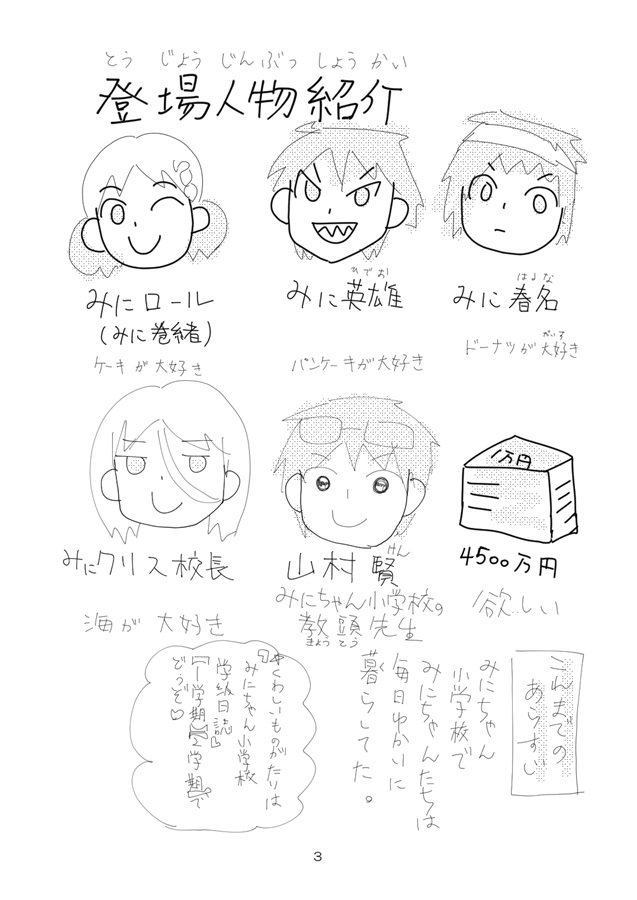 とう じょう じんぶつ しょう かい
登場人物紹介
みにロール
(みに巻緒)
ケーキが大好き
ひでお
みに英雄
パンケーキが大好き
はるな
みに春名
だいす
ドーナツが大好き
みにクリス校長
海が大好き
けん
山村賢
みにちゃん小学校の
教頭先生
きょうとう
1万円
4500万円
欲しい
これまでの
あらすじ
みにちゃん
小学校で
みにちゃんたちは
毎日ゆかいに
暮らしてた。
くわしいものがたりは
『みにちゃん小学校
学級日誌』
【1学期】【2学期】で
どうぞ♡
3